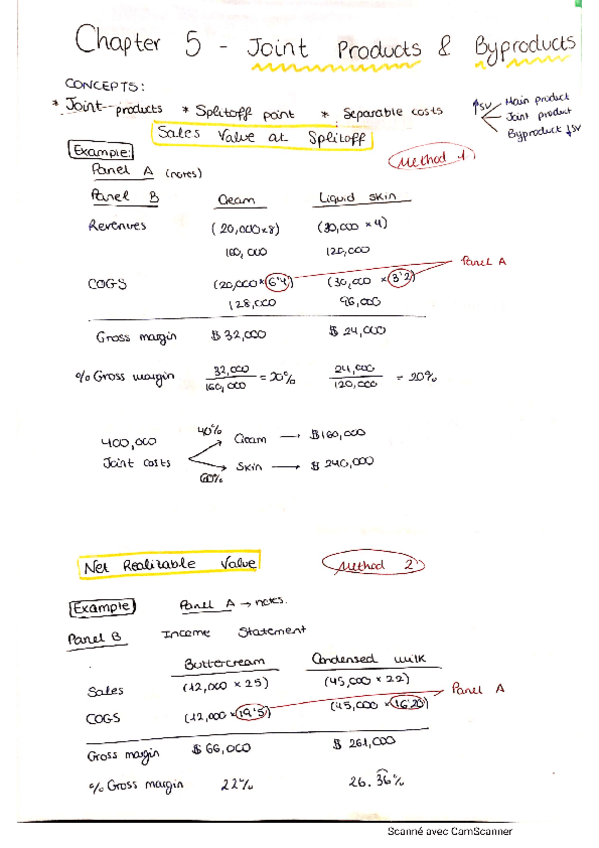 Chapter 5 - Joint Products & Byproducts
CONCEPTS:
* Joint-products * Splitoff point * Separable costs
↑SV Main product
Joint product
Byproduct ↓SV
Sales Value at Splitoff
Example:
Method 1
Panel A (notes)
Panel B Cream Liquid skin
Revenues (20,000×8) (30,000 ×4)
160,000 120,000
Panel A
COGS (20,000×6'4) (30,000 ×3'2)
128,000 96,000
Gross margin $32,000 $24,000
% Gross margin 32,000/160,000 = 20% 24,000/120,000 = 20%
400,000 Joint costs
40% Cream → $160,000
60% Skin → $240,000
Net Realizable Value
Method 2
Example Panel A → notes.
Panel B Income Statement
Buttercream Condensed milk
Sales (12,000 × 25) (45,000 × 22)
Panel A
COGS (12,000×19'5) (45,000 ×16'20)
Gross margin $66,000 $261,000
% Gross margin 22% 26.36%
Scanné avec CamScanner